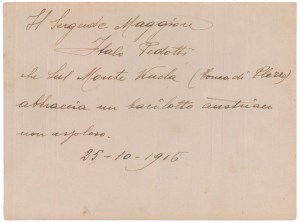 Il Sergente Maggiore
Italo Pedotti
che sul Monte (Conca di Plezzo)
abbraccia un bariletto austriaco
non esploso.
25-10-1915